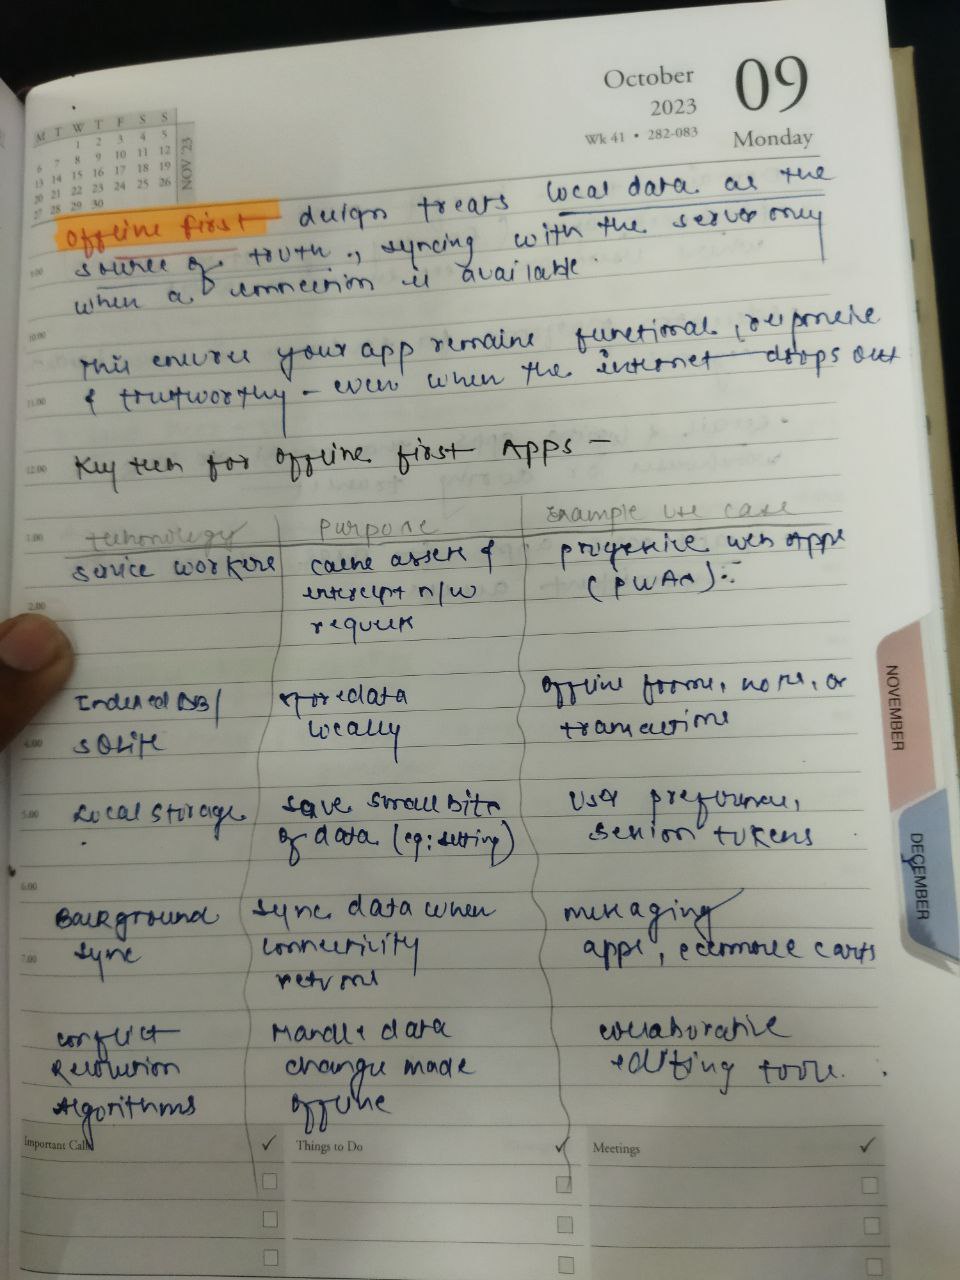 October
09
2023
Wk 41 • 282-083
Monday
M T W T F S S
1 2 3 4 5
6 7 8 9 10 11 12
13 14 15 16 17 18 19
20 21 22 23 24 25 26
27 28 29 30
NOV '23
offline first design treats local data as the
source of truth, syncing with the server only
when a connection is available.
This ensures your app remains functional, responsive
& trustworthy - even when the internet drops out
Key tech for offline first Apps -
technology
Purpose
Example use case
service workers
cache assets &
intercept n/w
requests
progressive web apps
(PWAs)
Indexed DB/
SQlite
store data
locally
offline forms, notes, or
transactions
Local Storage
save small bits
of data (eg: setting)
user preferences,
session tokens
Background
sync
sync data when
connectivity
returns
messaging
apps, ecommerce carts
conflict
Resolution
Algorithms
Handle data
changes made
offline
collaborative
editing tools.
9.00
10.00
11.00
12.00
1.00
2.00
4.00
5.00
6.00
7.00
NOVEMBER
DECEMBER
Important Calls
Things to Do
Meetings